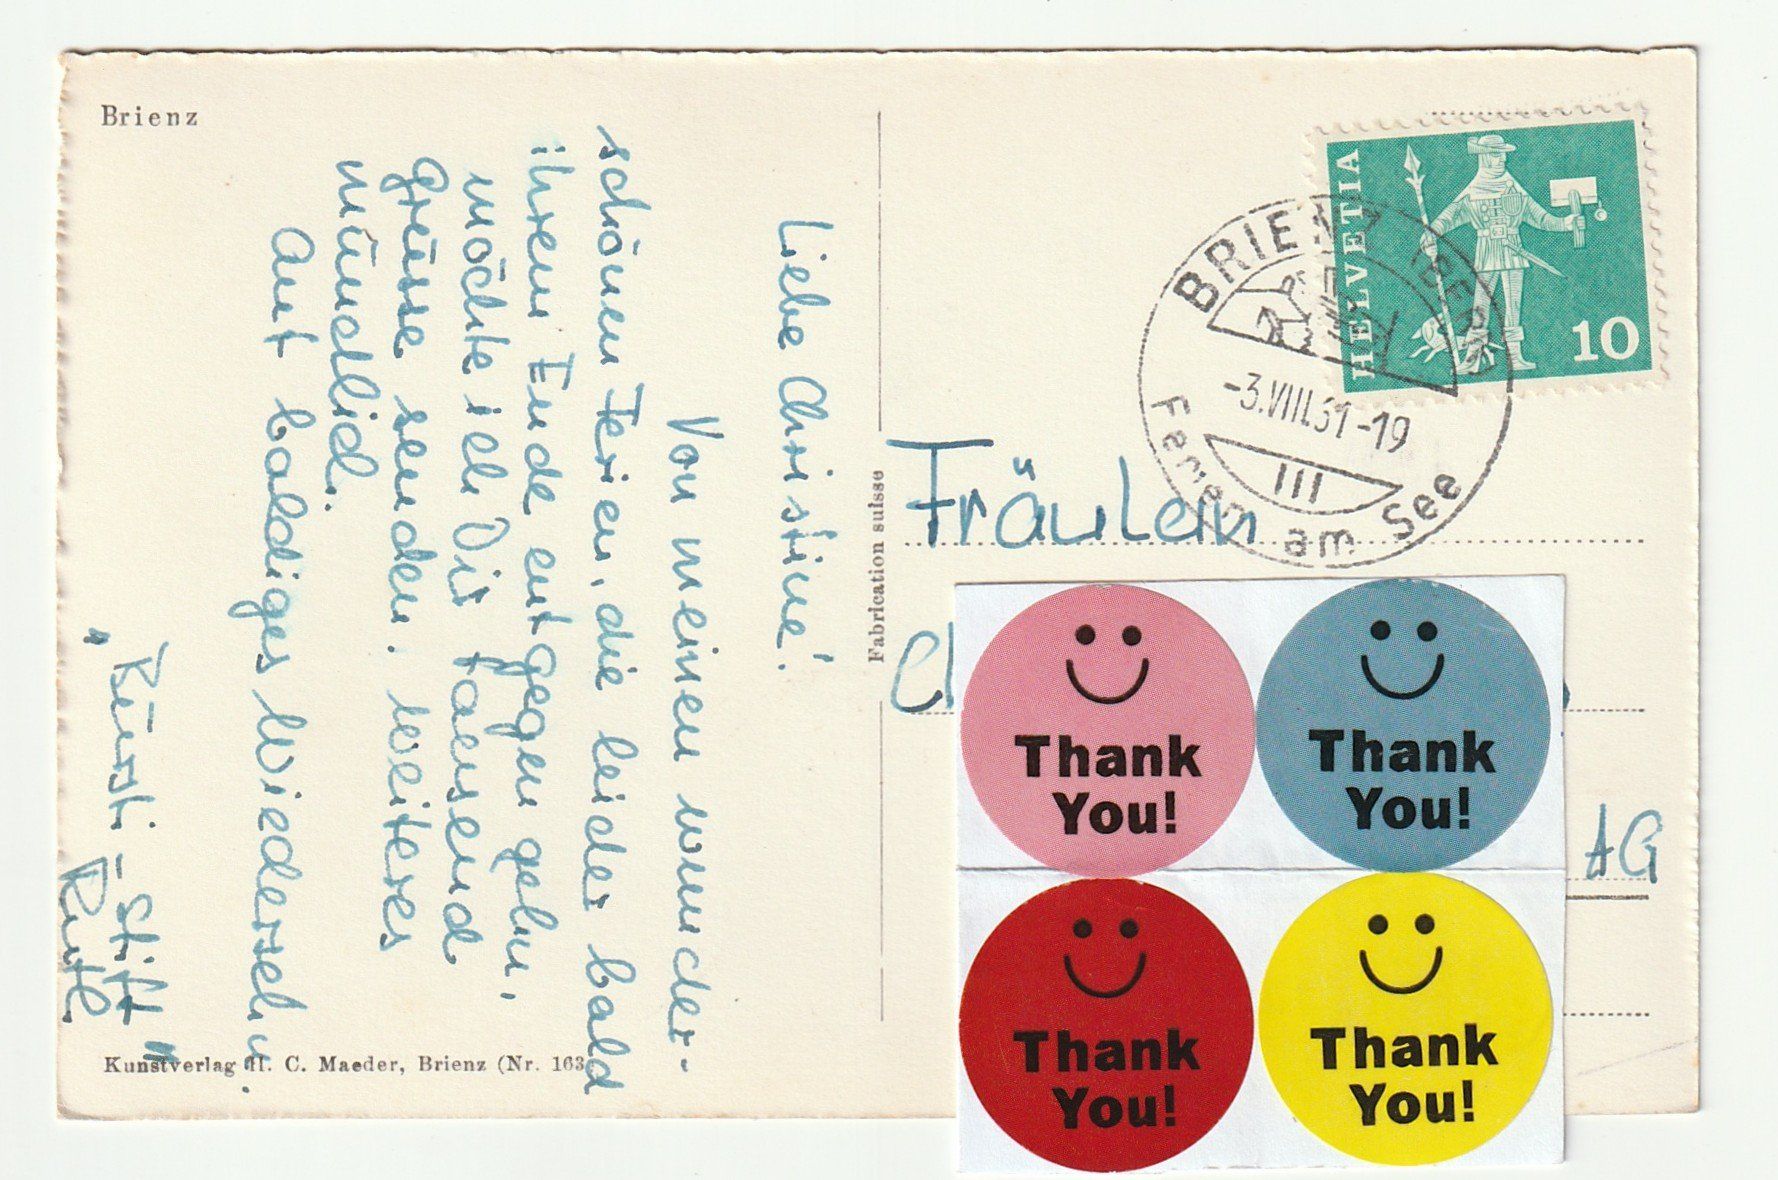 Brienz
Liebe Christine!
Von meinen wunder-
schönen Ferien, die leider bald
ihrem Ende entgegen gehn,
möchte ich Dir tausend
Grüsse senden. Weiteres
mündlich.
Auf baldiges Wiedersehn.
"Bürsti-Stift"
Ruth
Kunstverlag H. C. Maeder, Brienz (Nr. 163
Fabrication suisse
HELVETIA
10
BRIENZ (BERN)
-3.VIII.61-19
III
Ferien am See
Fräulein
AG
Thank
You!
Thank
You!
Thank
You!
Thank
You!